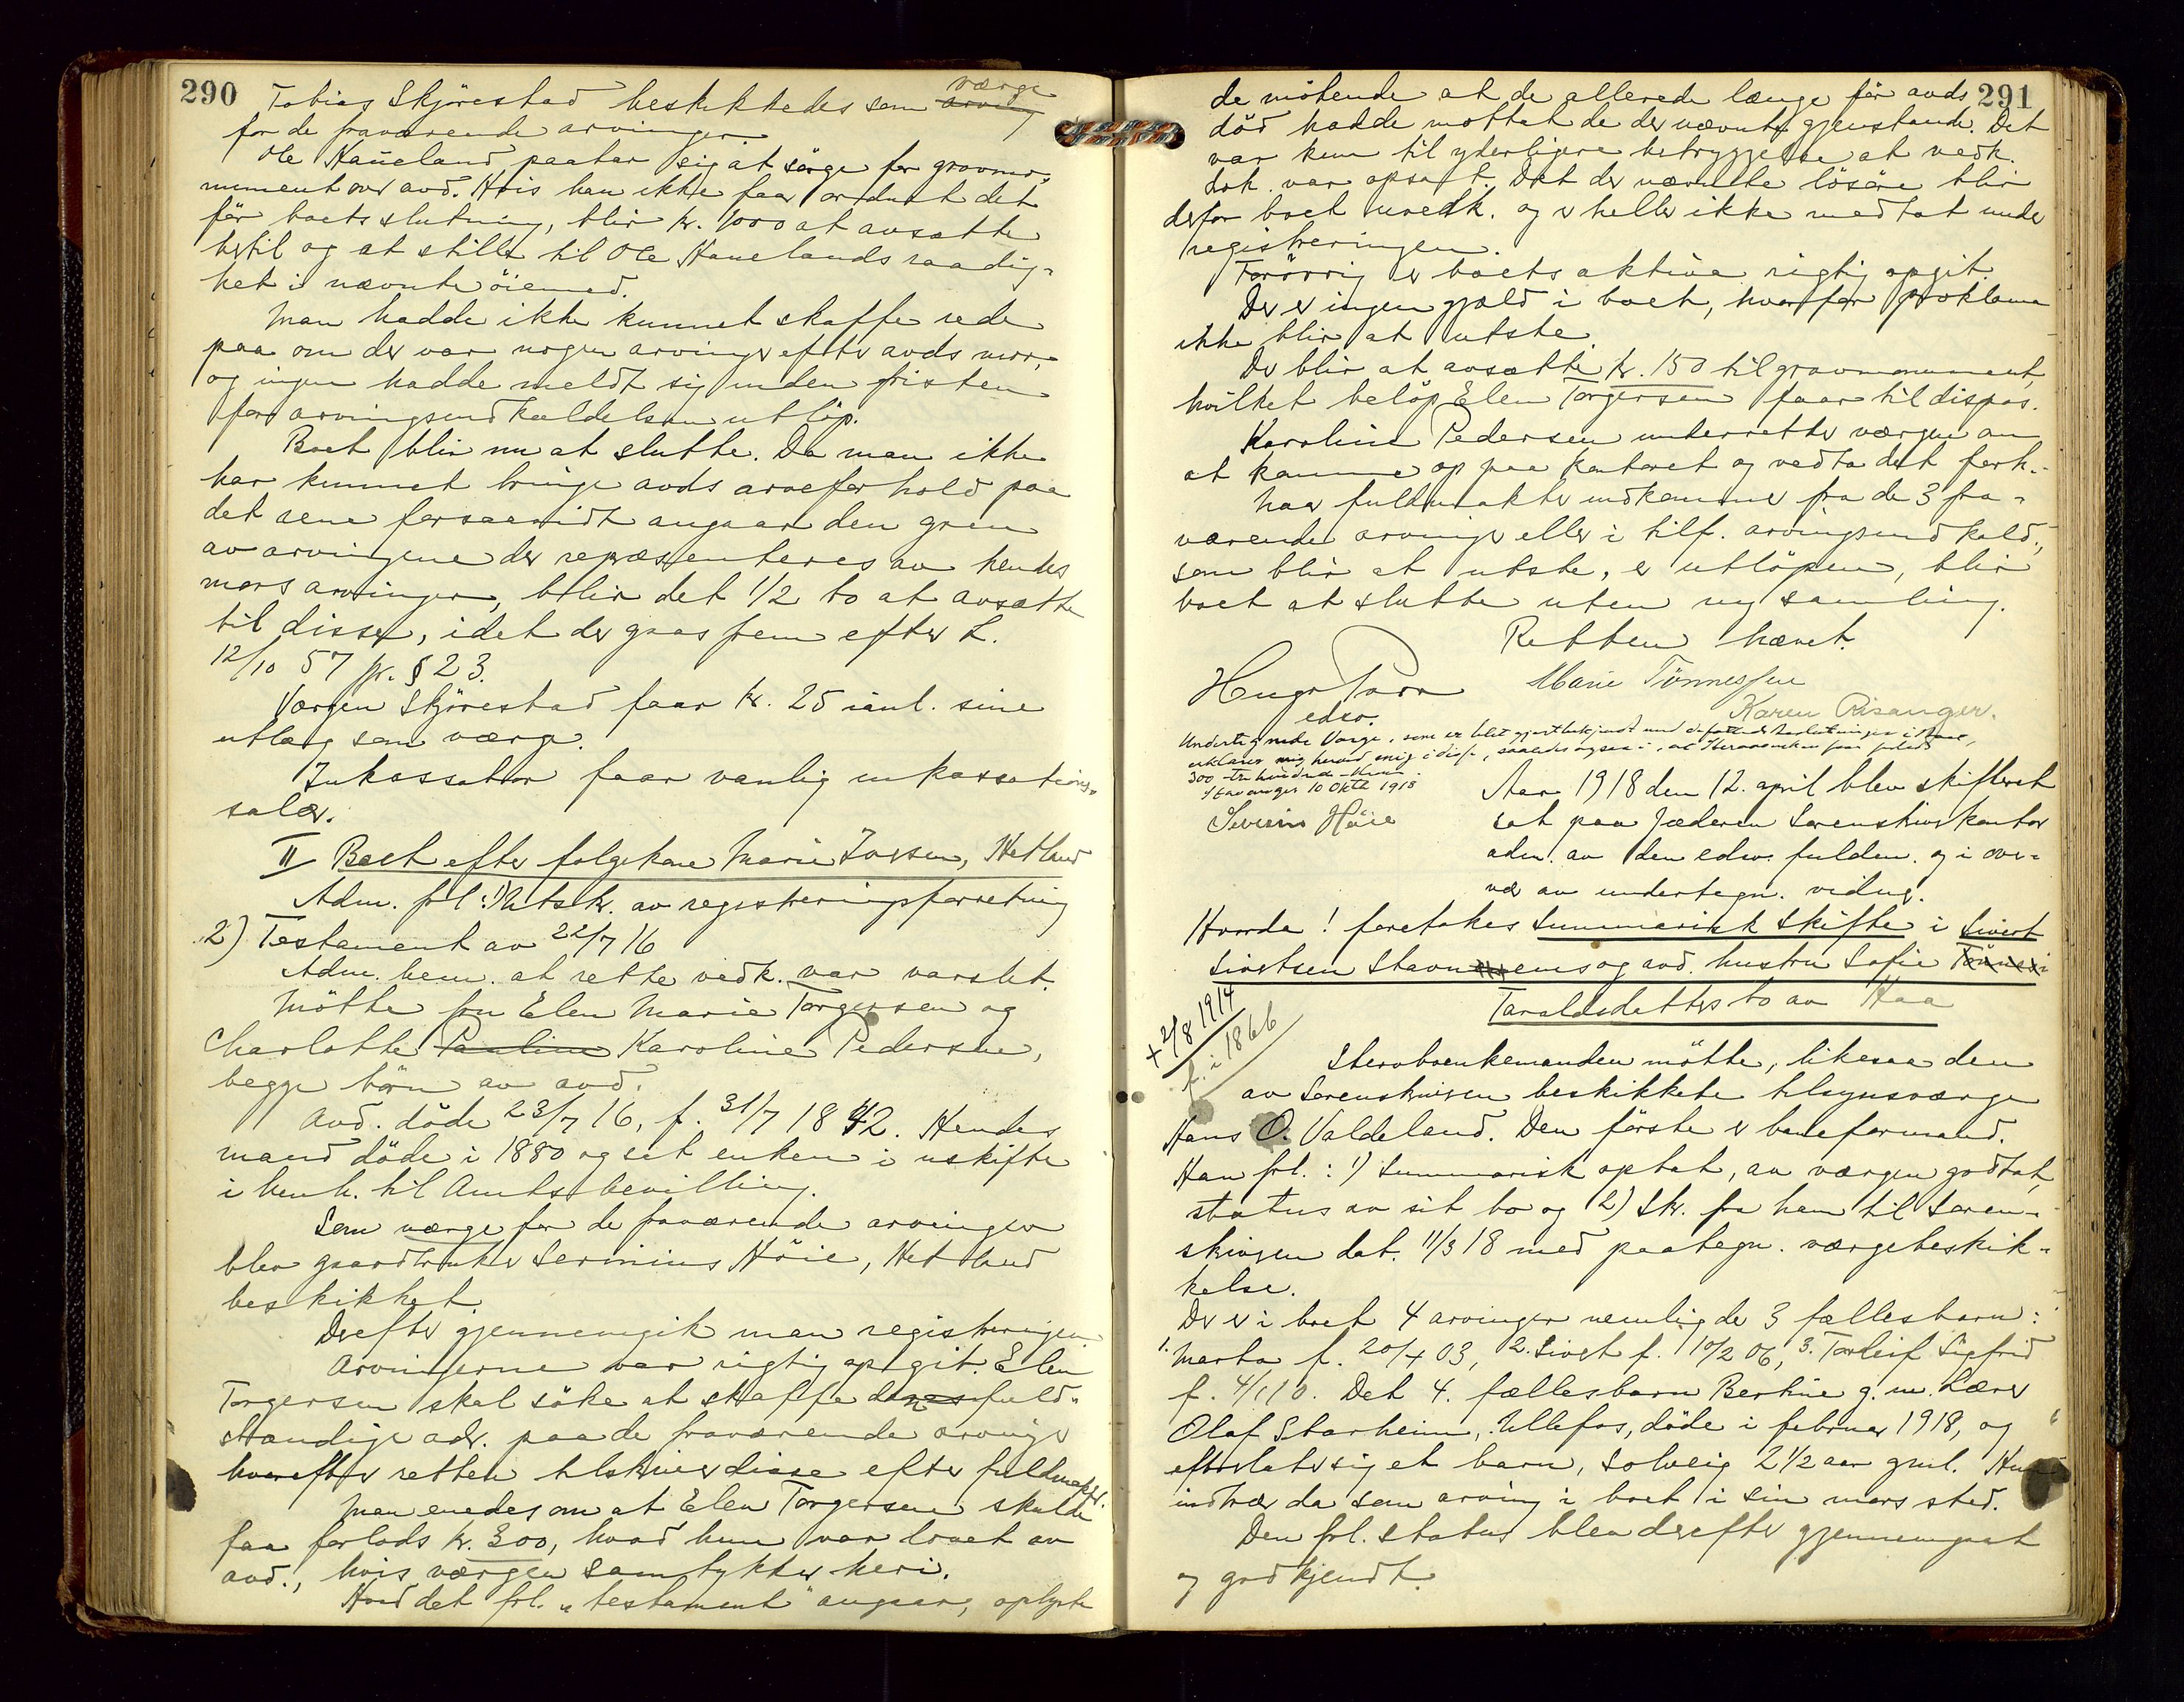 290
Tobias Skjörestad beskikkedes som værge
for de fraværende arvinger.
Ole Haneland paatar sig at sörge for gravmo-
nument over avd. Hvis han ikke faar ordnet det
för boets slutning, blir kr. 1000 at avsætte
hertil og at stille til Ole Hanelands raadig-
het i nævnte öiemed.
Man hadde ikke kunnet skaffe rede
paa om der var nogen arvinger efter avds mor,
og ingen hadde meldt sig inden fristen
for arvingsindkaldelsen utlöp.
Boet blir nu at slutte. Da man ikke
har kunnet bringe avds arveforhold paa
det rene forsaavidt angaar den gren
av arvingene der repræsenteres av hendes
mors arvinger, blir det 1/2 bo at avsætte
til disse, idet der gaas frem efter L.
12/10 57 § 23.
Værgen Skjörestad faar kr. 25 inkl. sine
utlæg som værge.
Inkassator faar vanlig inkassations-
salær.
II Boet efter folgekone Marie Iversen, Hetland
Adm. frl: 1) Utskr. av registreringsforretning
2) Testament av 22/7 16
Adm. bem. at rette vedk. var varslet.
Mötte fru Elen Marie Torgersen og
Charlotte Pauline Karoline Pedersen,
begge börn av avd.
Avd. döde 23/7 16, f. 31/7 1842. Hendes
mand döde i 1880 og sat enken i uskifte
i henh. til Amtsbevilling.
Som værge for de fraværende arvinger
blev gaardbruker Serinius Höie, Hetland
beskikket.
Derefter gjennemgik man registreringen
Arvingerne var rigtig opgit. Elen
Torgersen skal söke at skaffe den fuld-
stændige adr. paa de fraværende arvinger
hvorefter retten tilskriver disse efter fuldmakter.
Man enedes om at Elen Torgersen skulde
faa forlods kr. 300, hvad hun var lovet av
avd., hvis værgen samtykker heri.
Hvad det frl. "testament" angaar, oplyste
291
de mötende at de allerede længe för avds
död hadde mottat de der nævnte gjenstande. Det
var kun til yderligere betryggelse at vedk.
dok. var opsat. Det der nævnte lösöre blir
derfor boet uvedk. og er heller ikke medtat under
registreringen.
Forövrig er boets aktiva rigtig opgit.
Der er ingen gjæld i boet, hvorfor proklama
ikke blir at utste.
Der blir at avsætte kr. 150 til gravmonument,
hvilket belöp Elen Torgersen faar til dispos.
Karoline Pedersen underretter værgen om
at komme op paa kontoret og vedta det forh.
Naar fuldmakter indkommer fra de 3 fra-
værende arvinger eller i tilf. arvingsindkald.,
som blir at utste, er utlöpen, blir
boet at slutte uten ny samling.
Retten hævet.
Marie Tönnessen
edsv.
Karen Risanger.
Undertegnede Værge, som er blet gjort bekjendt med
erklærer mig herved enig i disse,
300 -tre hundrede- Kroner.
Stavanger 10 Okt 1918
Severin Höie
Aar 1918 den 12. april blev skifteret
sat paa Jæderen Sorenskriverkontor
adm. av den edsv. fuldm. og i over-
vær av undertegn. vidner.
Hvorda! foretokes summarisk skifte i Sivert
Sivertsen Stavnems og avd. hustru Sofie
Taraldsdatters bo av Haa
+ 2/8 1914
f. i 1866
Sterboenkemanden mötte, likesaa den
av Sorenskriveren beskikkete tilsynsværge
Hans O. Valdeland. Den förste er baneformand.
Han frl.: 1) Summarisk optat, av værgen godtat,
status av sit bo og 2) Skr. fra ham til Soren-
skriveren dat. 11/3 18 med paategn. værgebeskik-
kelse.
Der er i boet 4 arvinger nemlig de 3 fællesbarn:
1. Marta f. 20/4 03, 2. Sivert f. 10/2 06, 3. Torleif Sigfrid
f. 4/1 10. Det 4. fællesbarn Bertine g.m. Lærer
Olaf Starheim, Ullefos, döde i februar 1918, og
efterlater sig et barn, Solveig 2 1/2 aar gml. Hun
indtrær da som arving i boet i sin mors sted.
Den frl. status blev derefter gjennemgaat
og godkjendt.